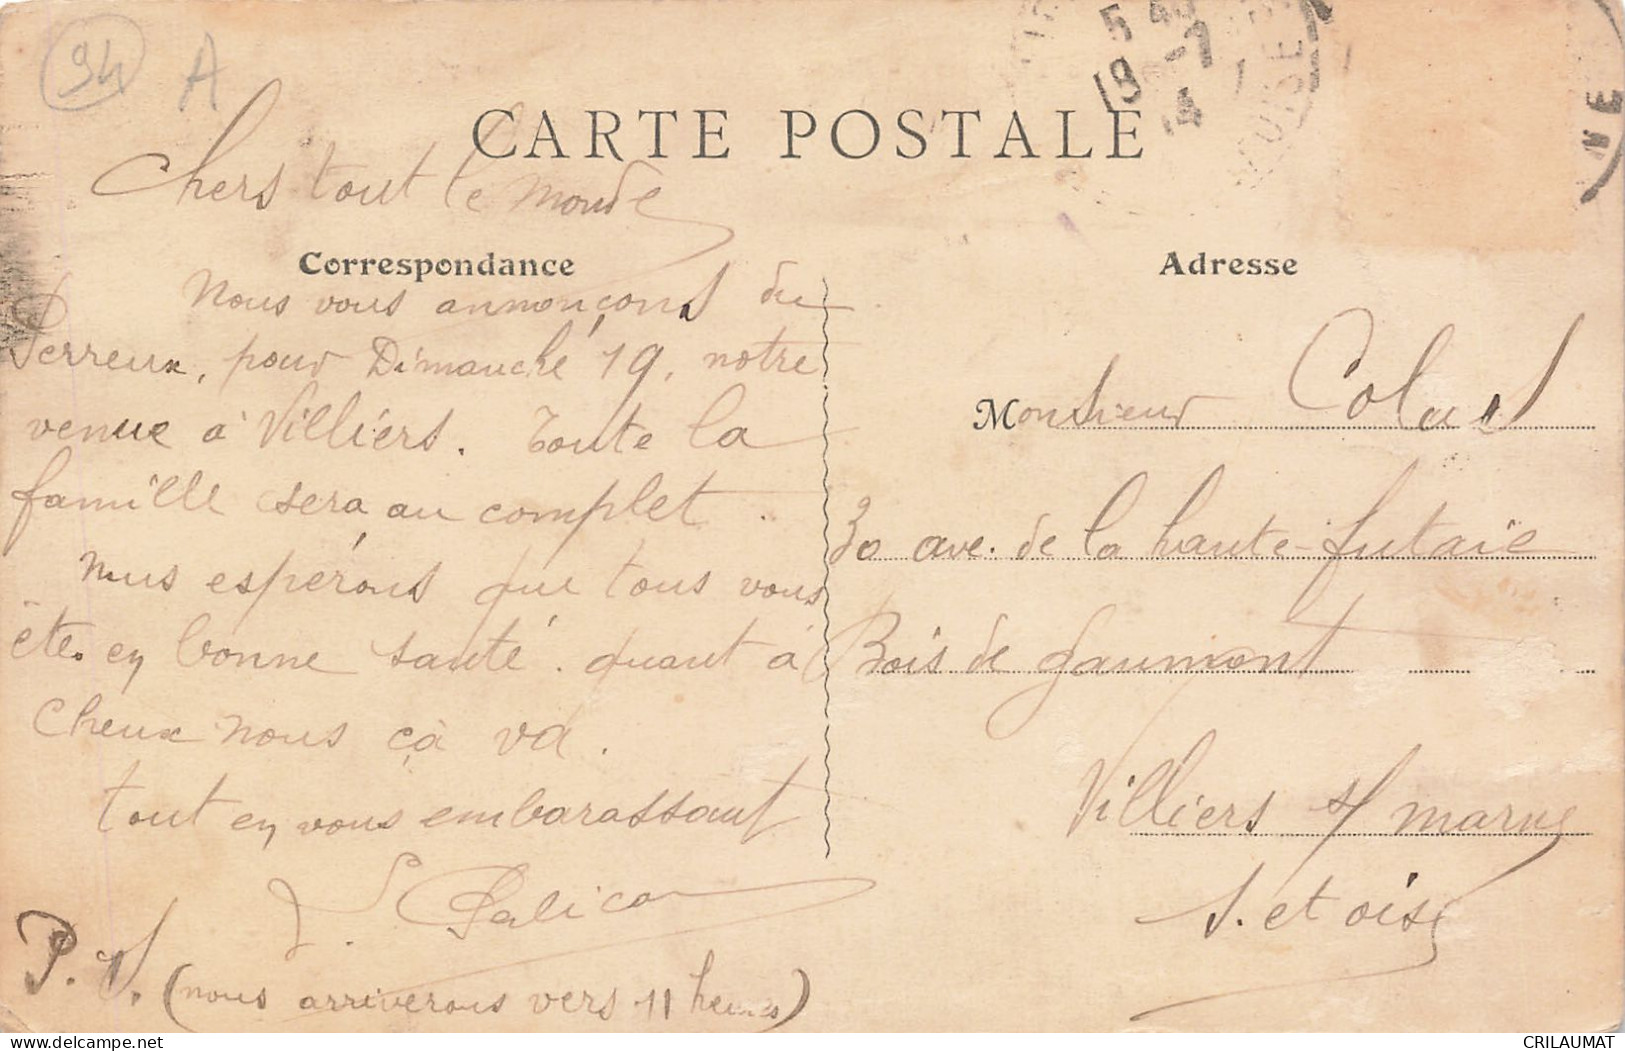 94 A
CARTE POSTALE
Chers tout le monde
Correspondance
Nous vous annonçons du
Perreux, pour Dimanche 19, notre
venue à Villiers. Toute la
famille sera au complet.
Nous espérons que tous vous
êtes en bonne santé. quant à
Cheux nous çà va.
tout en vous embarassant
P.S. (nous arriverons vers 11 heures)
5 45
19 -7
14
NE
Adresse
Monsieur Colas
30 ave. de la haute-futaie
Bois de gaumont
Villiers s/ marne
S. et oise
CRILAUMAT